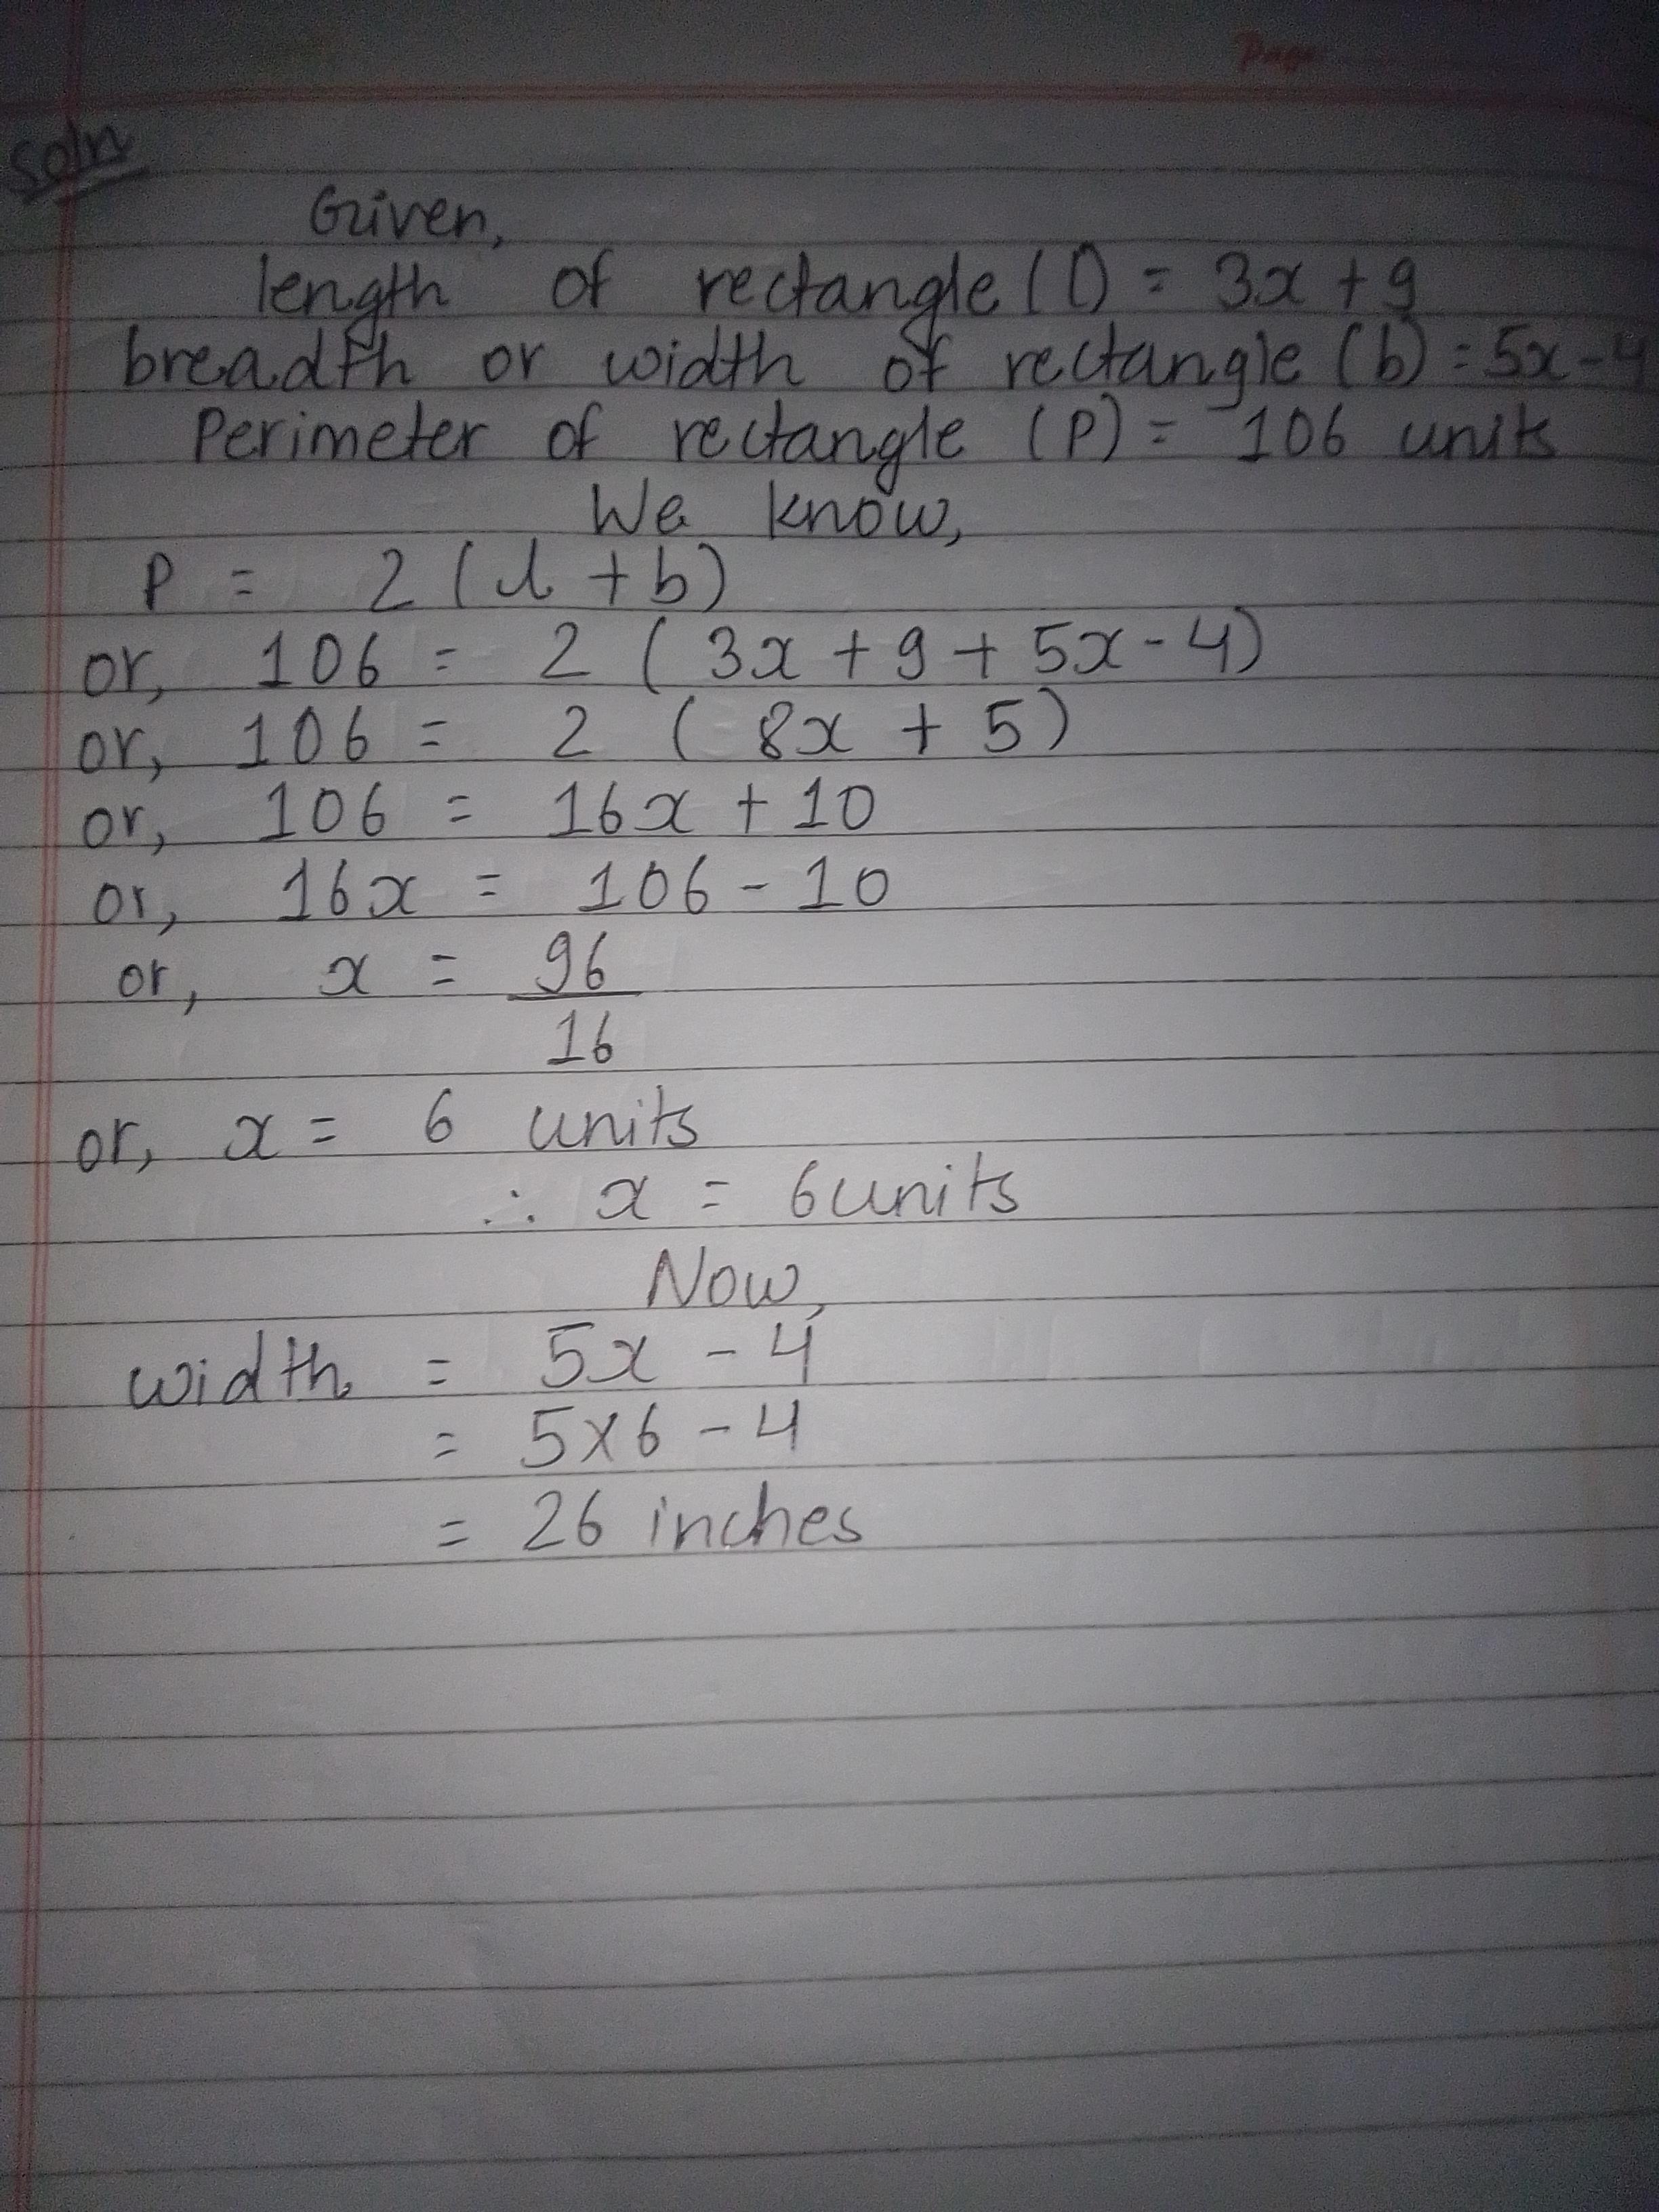 Page
Soln
Given,
length of rectangle (l) = 3x + 9
breadth or width of rectangle (b) = 5x - 4
Perimeter of rectangle (P) = 106 units
We know,
P = 2 (l + b)
or, 106 = 2 ( 3x + 9 + 5x - 4)
or, 106 = 2 ( 8x + 5 )
or, 106 = 16x + 10
or, 16x = 106 - 10
or, x = 96
16
or, x = 6 units
∴ x = 6 units
Now,
width = 5x - 4
= 5x6 - 4
= 26 inches